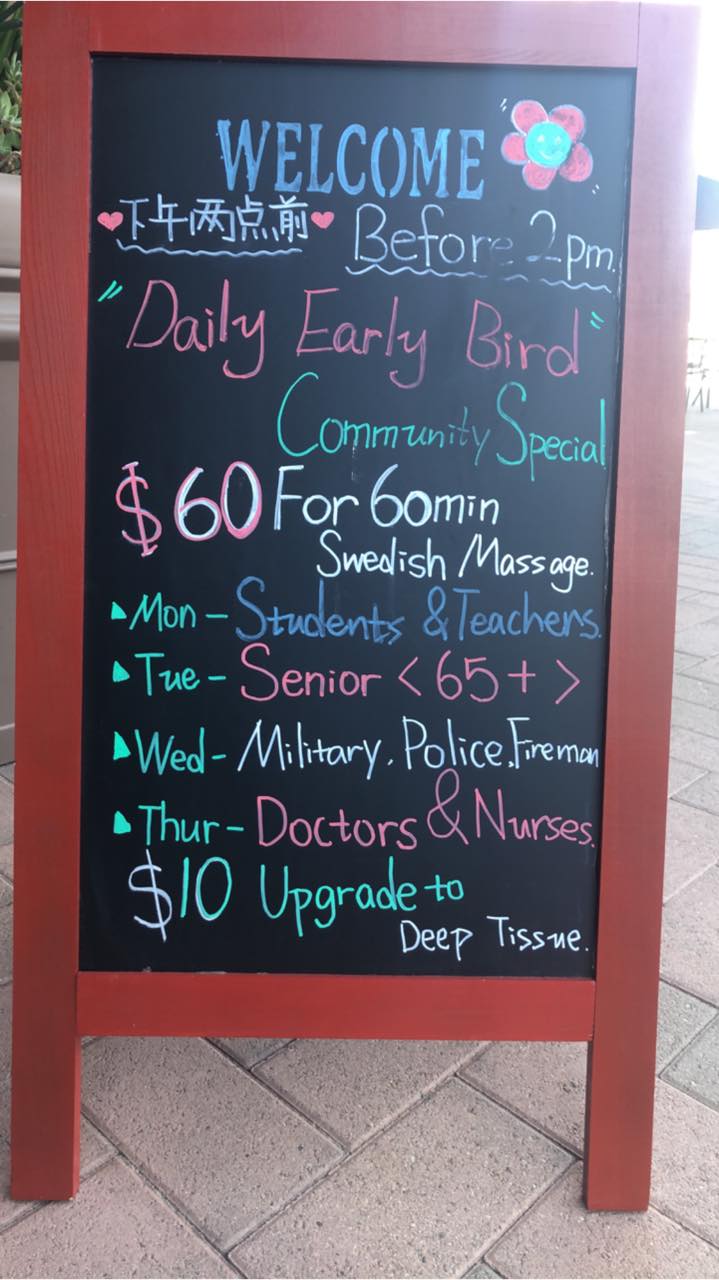 WELCOME
下午两点前 Before 2pm.
"Daily Early Bird"
Community Special
$60 For 60min
Swedish Massage.
Mon - Students & Teachers.
Tue - Senior < 65+ >
Wed - Military, Police, Fireman
Thur - Doctors & Nurses.
$10 Upgrade to
Deep Tissue.